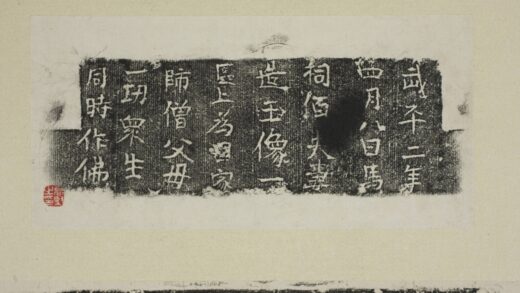 武平二年
四月八日馬
祠伯夫妻
造玉像一
區上為國家
師僧父母
一切衆生
同時作佛